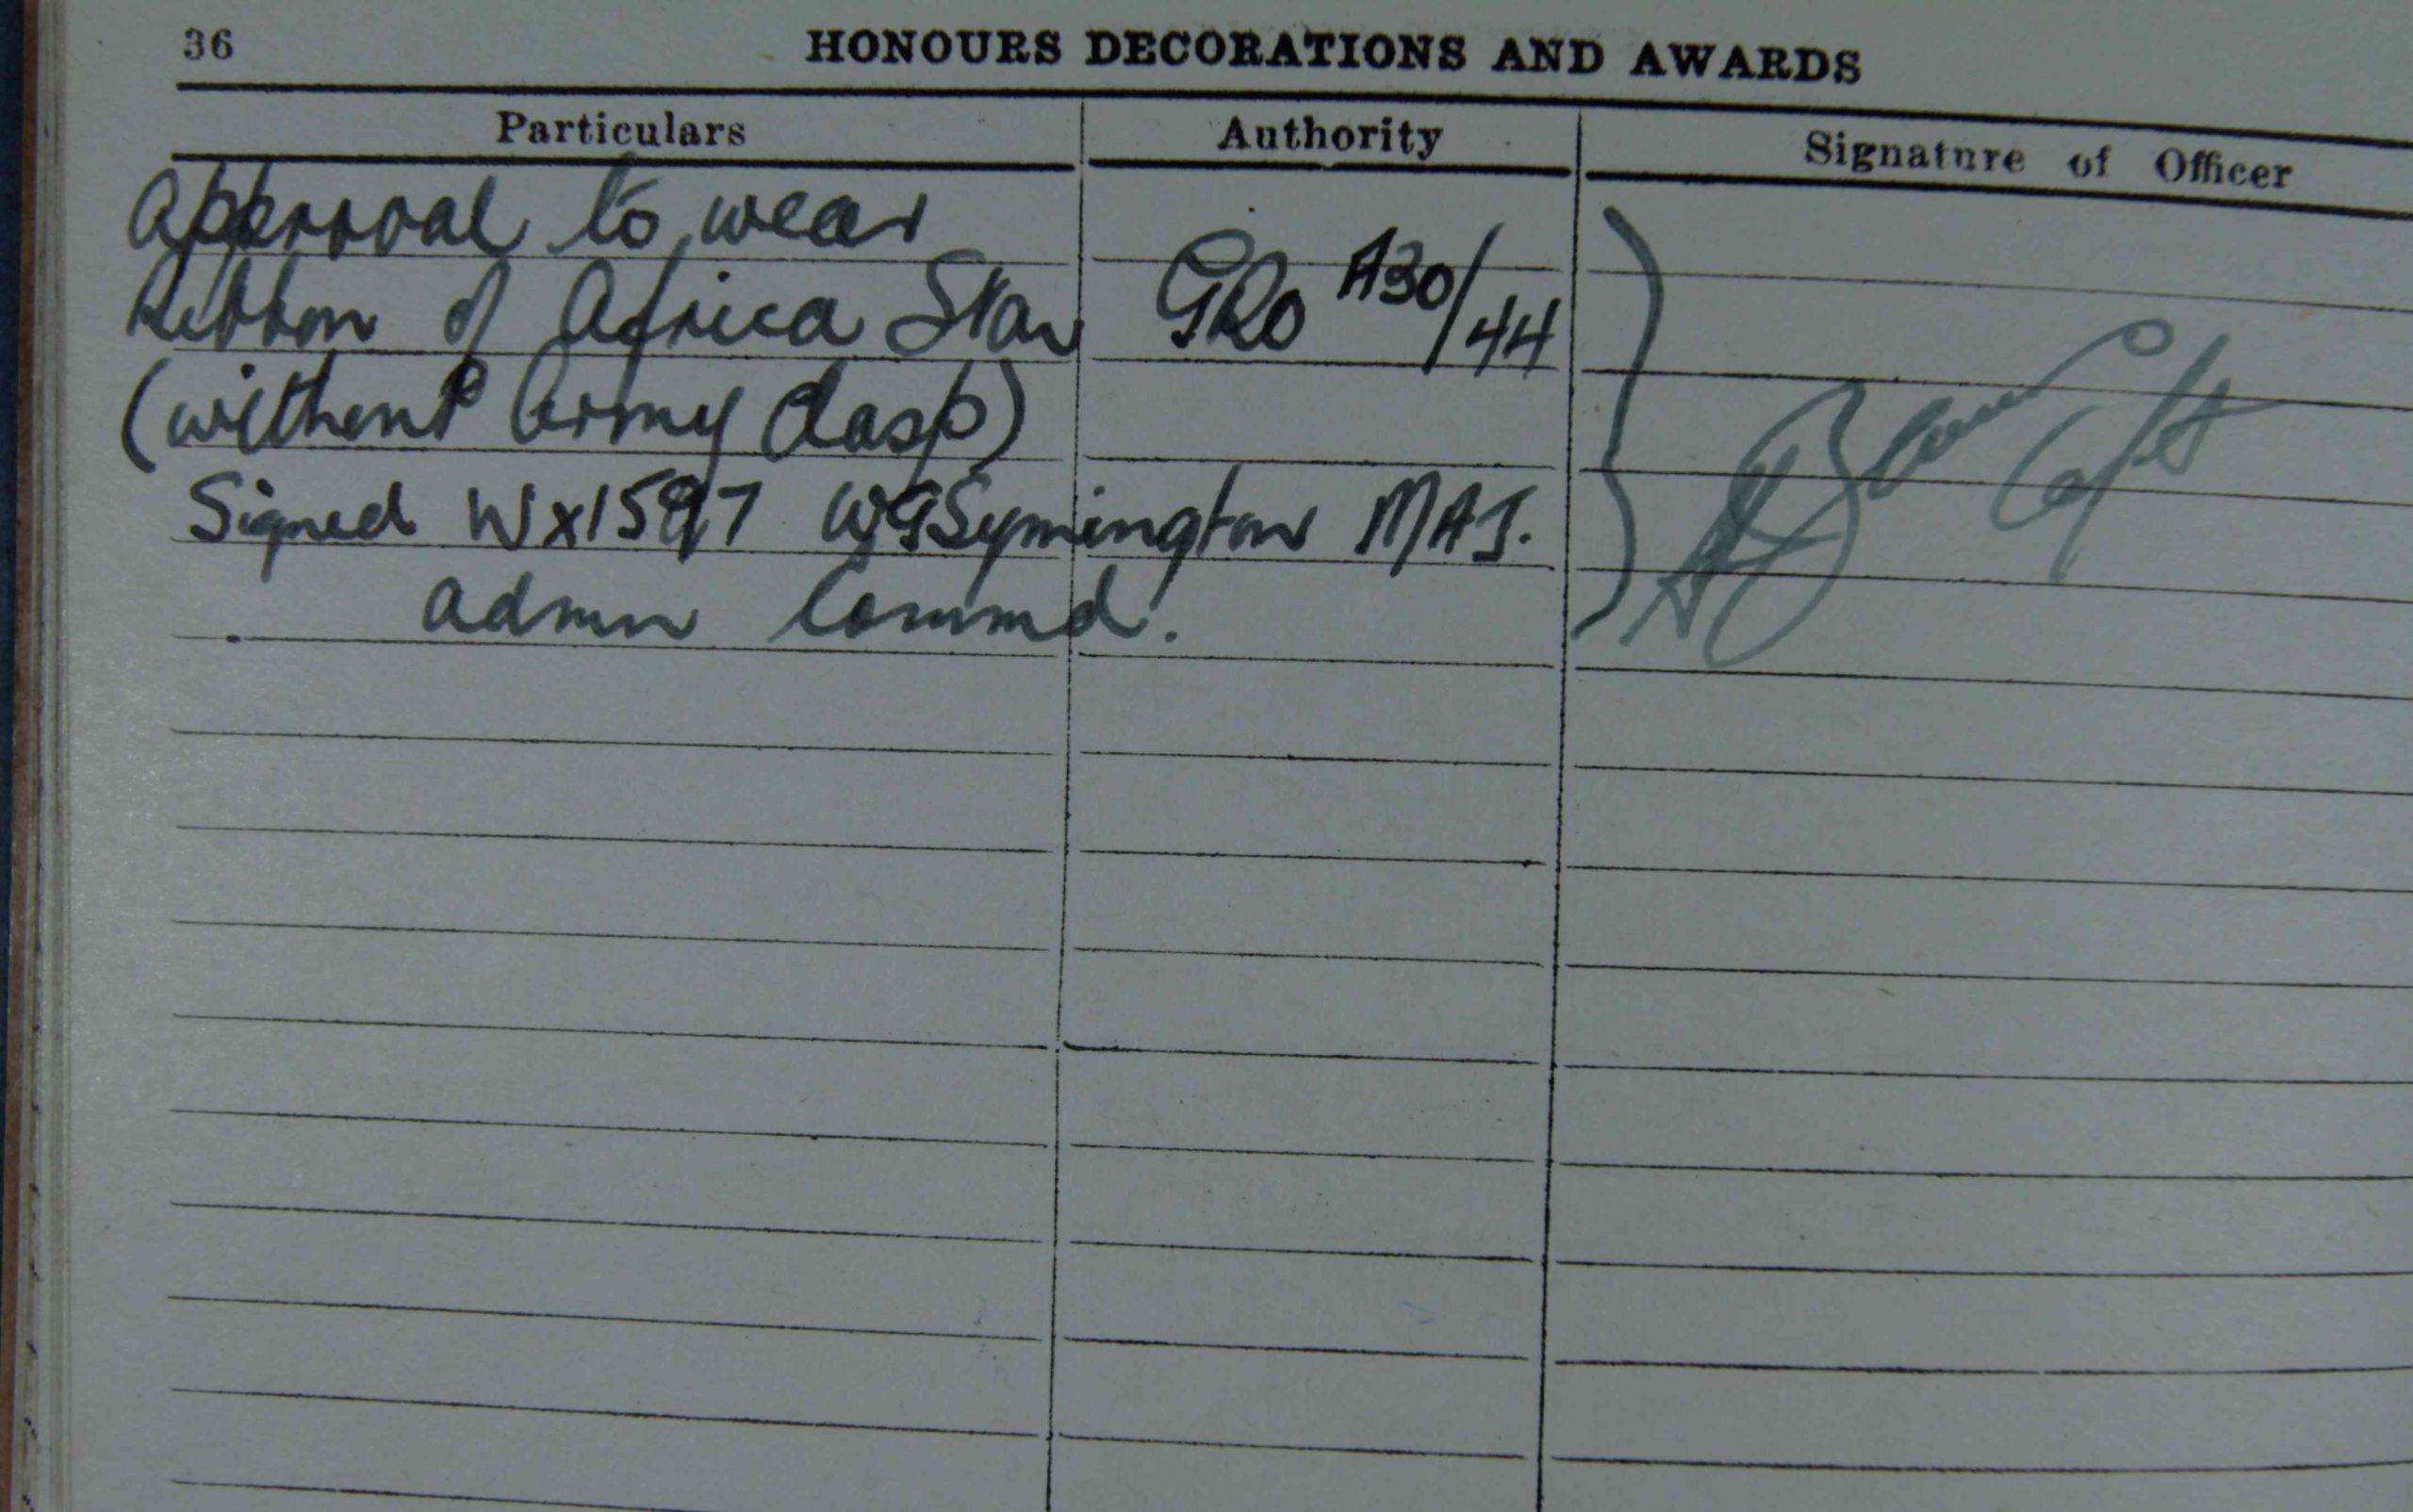 36
HONOURS DECORATIONS AND AWARDS
Particulars Authority Signature of Officer
Approval to wear
Ribbon of Africa Star GRO A30/44
(without Army Clasp)
Capt
Signed WX1597 WGSymington MAJ.
Admn Commd.